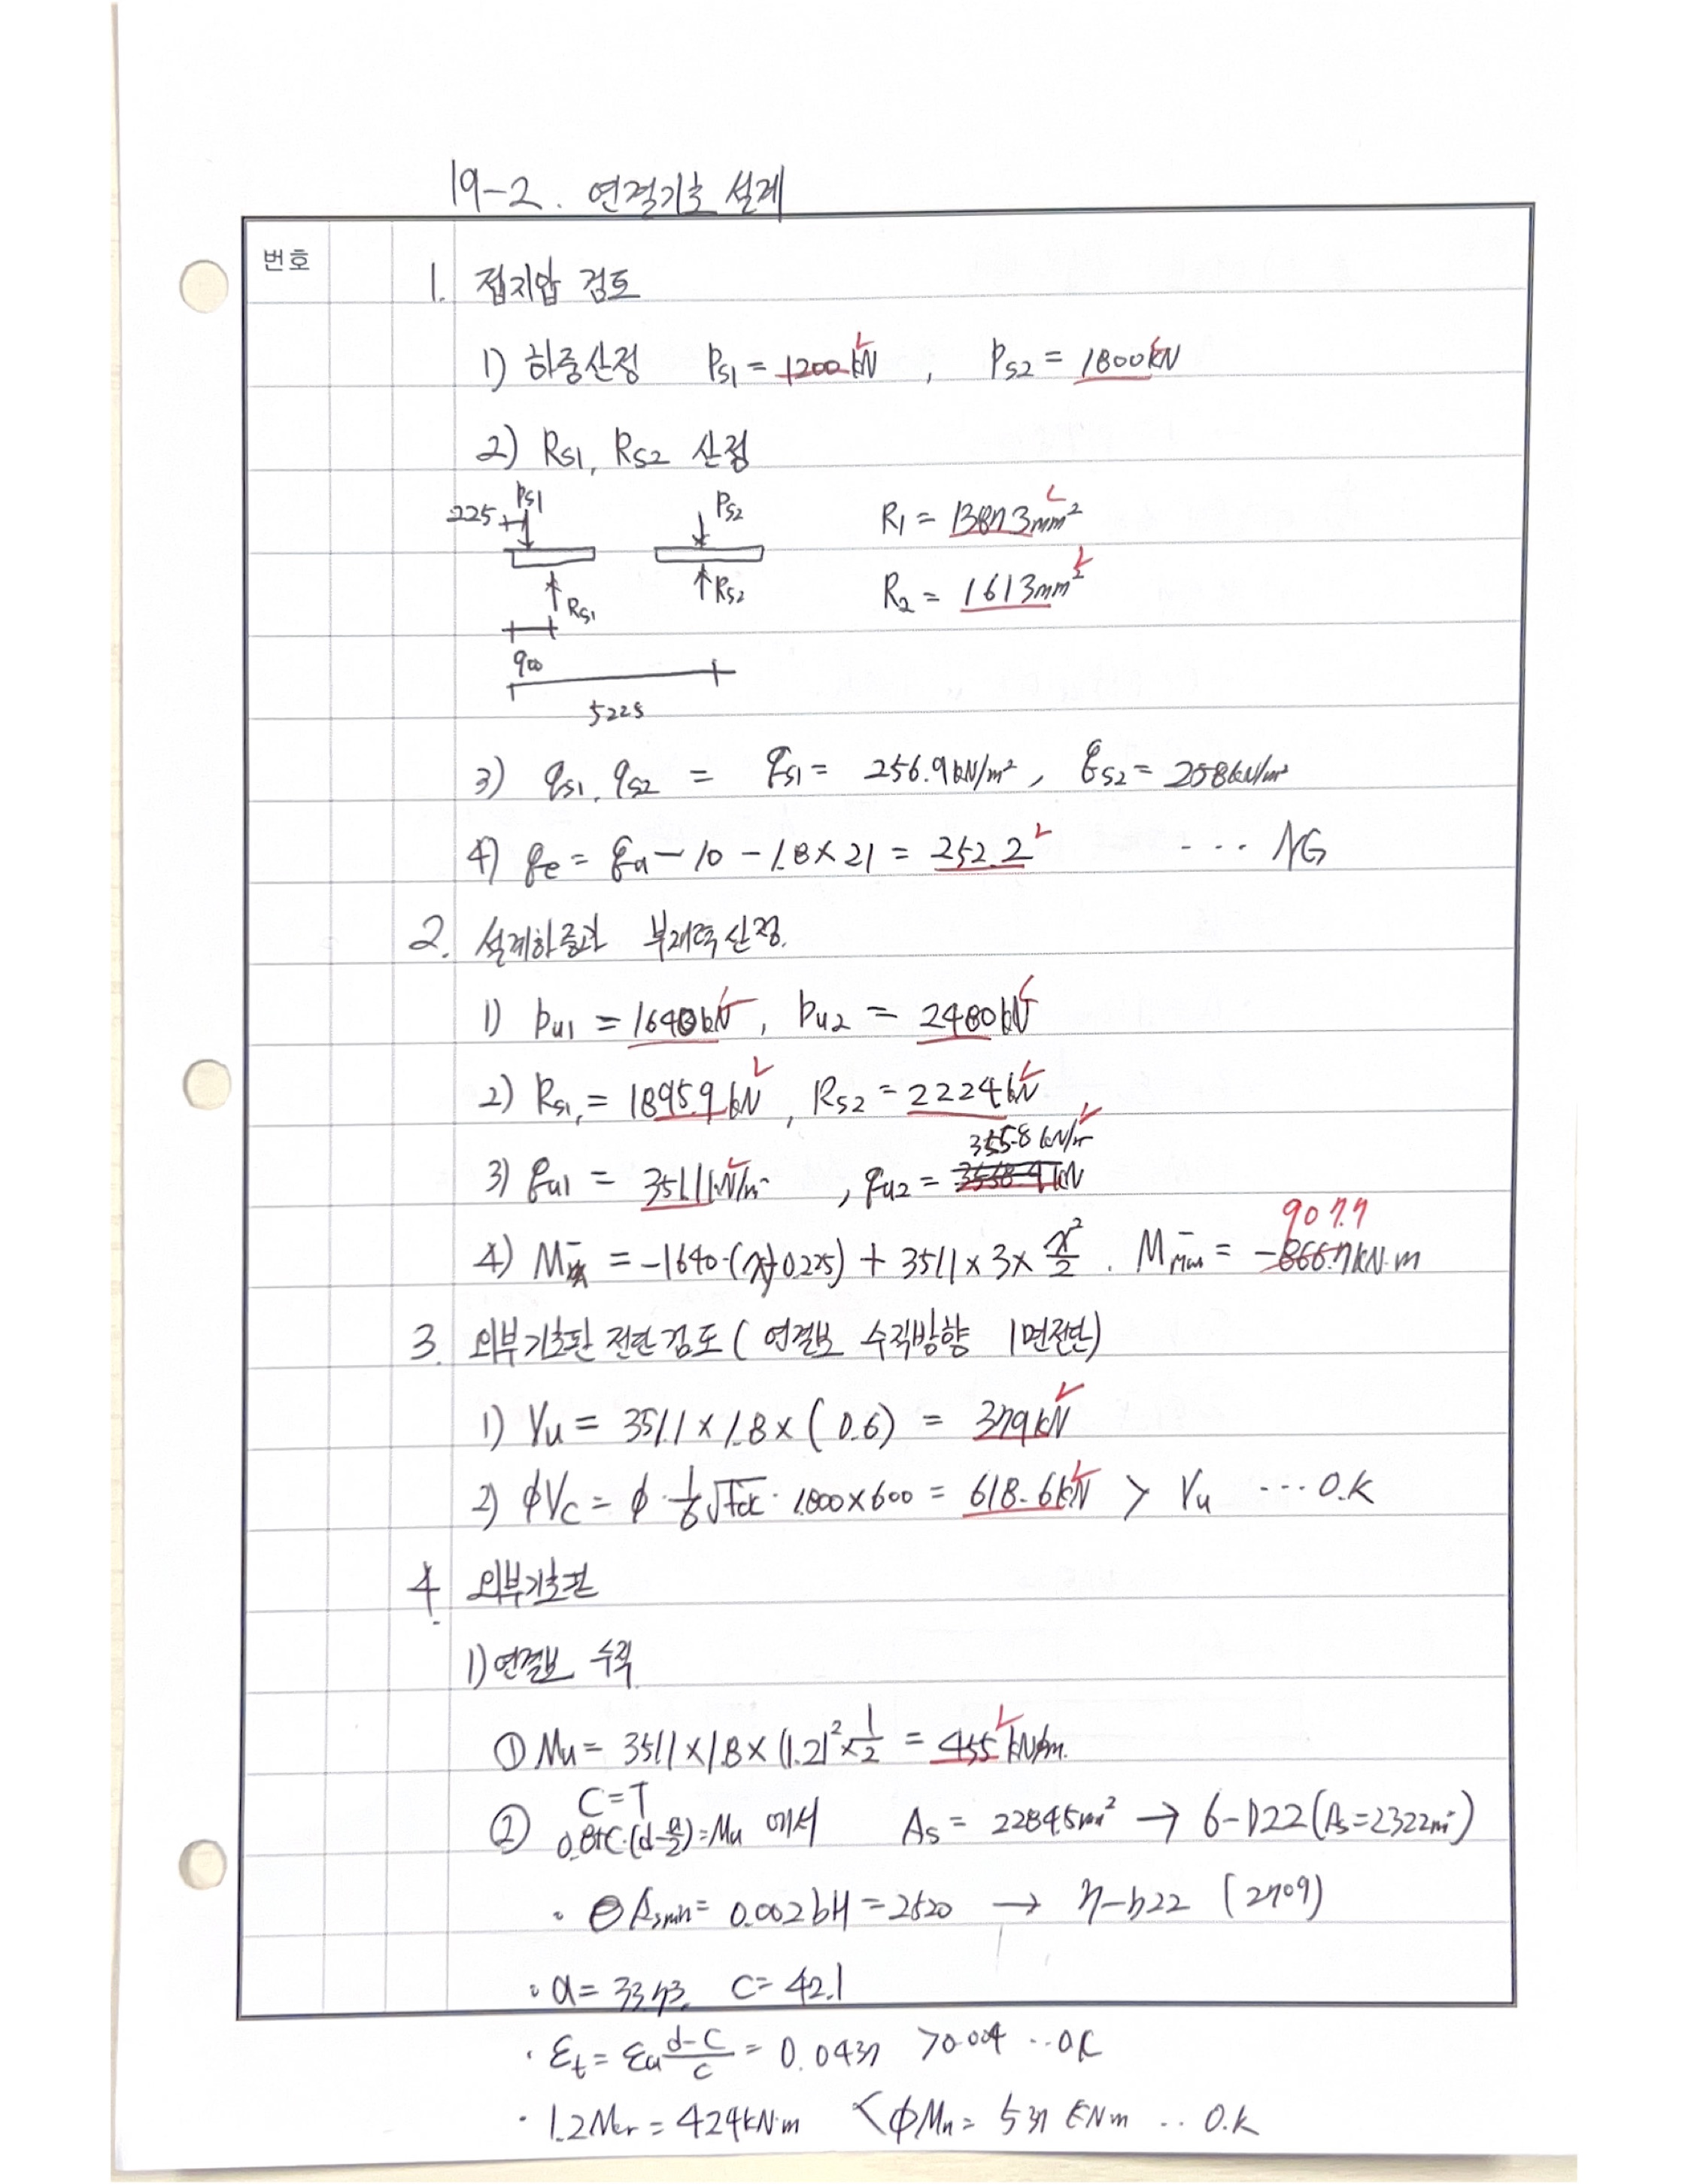 19-2. 연결기초 설계
번호
1. 접지압 검토
1) 하중산정 Ps1 = 1200kN , Ps2 = 1800kN
2) Rs1, Rs2 산정
225 Ps1 Ps2 R1 = 1387.3mm²
Rs1 Rs2 R2 = 1613mm²
900
5225
3) qs1, qs2 = qs1 = 256.9kN/m², qs2 = 258kN/m²
4) qe = qa - 10 - 1.8×21 = 252.2 ... NG
2. 설계하중과 부재력산정.
1) Pu1 = 1640kN, Pu2 = 2480kN
2) Rs1, = 1895.9kN, Rs2 = 2224kN
355.8 kN/m²
3) qu1 = 351.1kN/m² , qu2 =
907.7
4) M⁻ = -1640·(x+0.225) + 351.1×3×x²/2 . M⁻max = -866.7kN·m
3. 외부기초판 전단검토 (연결보 수직방향 1면전단)
1) Vu = 351.1×1.8×(0.6) = 379kN
2) φVc = φ·1/6√fck·1.800×600 = 618.6kN > Vu ... O.K
4. 외부기초판
1) 연결보 수직
① Mu = 351.1×1.8×(1.2)²×1/2 = 455kN/m.
② C=T
0.85C·(d-a/2)=Mu 에서 As = 2284.5mm² → 6-D22(As=2322m²)
· Asmin = 0.002bH = 2520 → 7-D22 (2709)
· a = 33.73, c = 42.1
· εt = εu (d-c)/c = 0.0437 >0.004 ..OK
· 1.2Mcr = 424kN·m < φMn = 537 kNm .. O.K